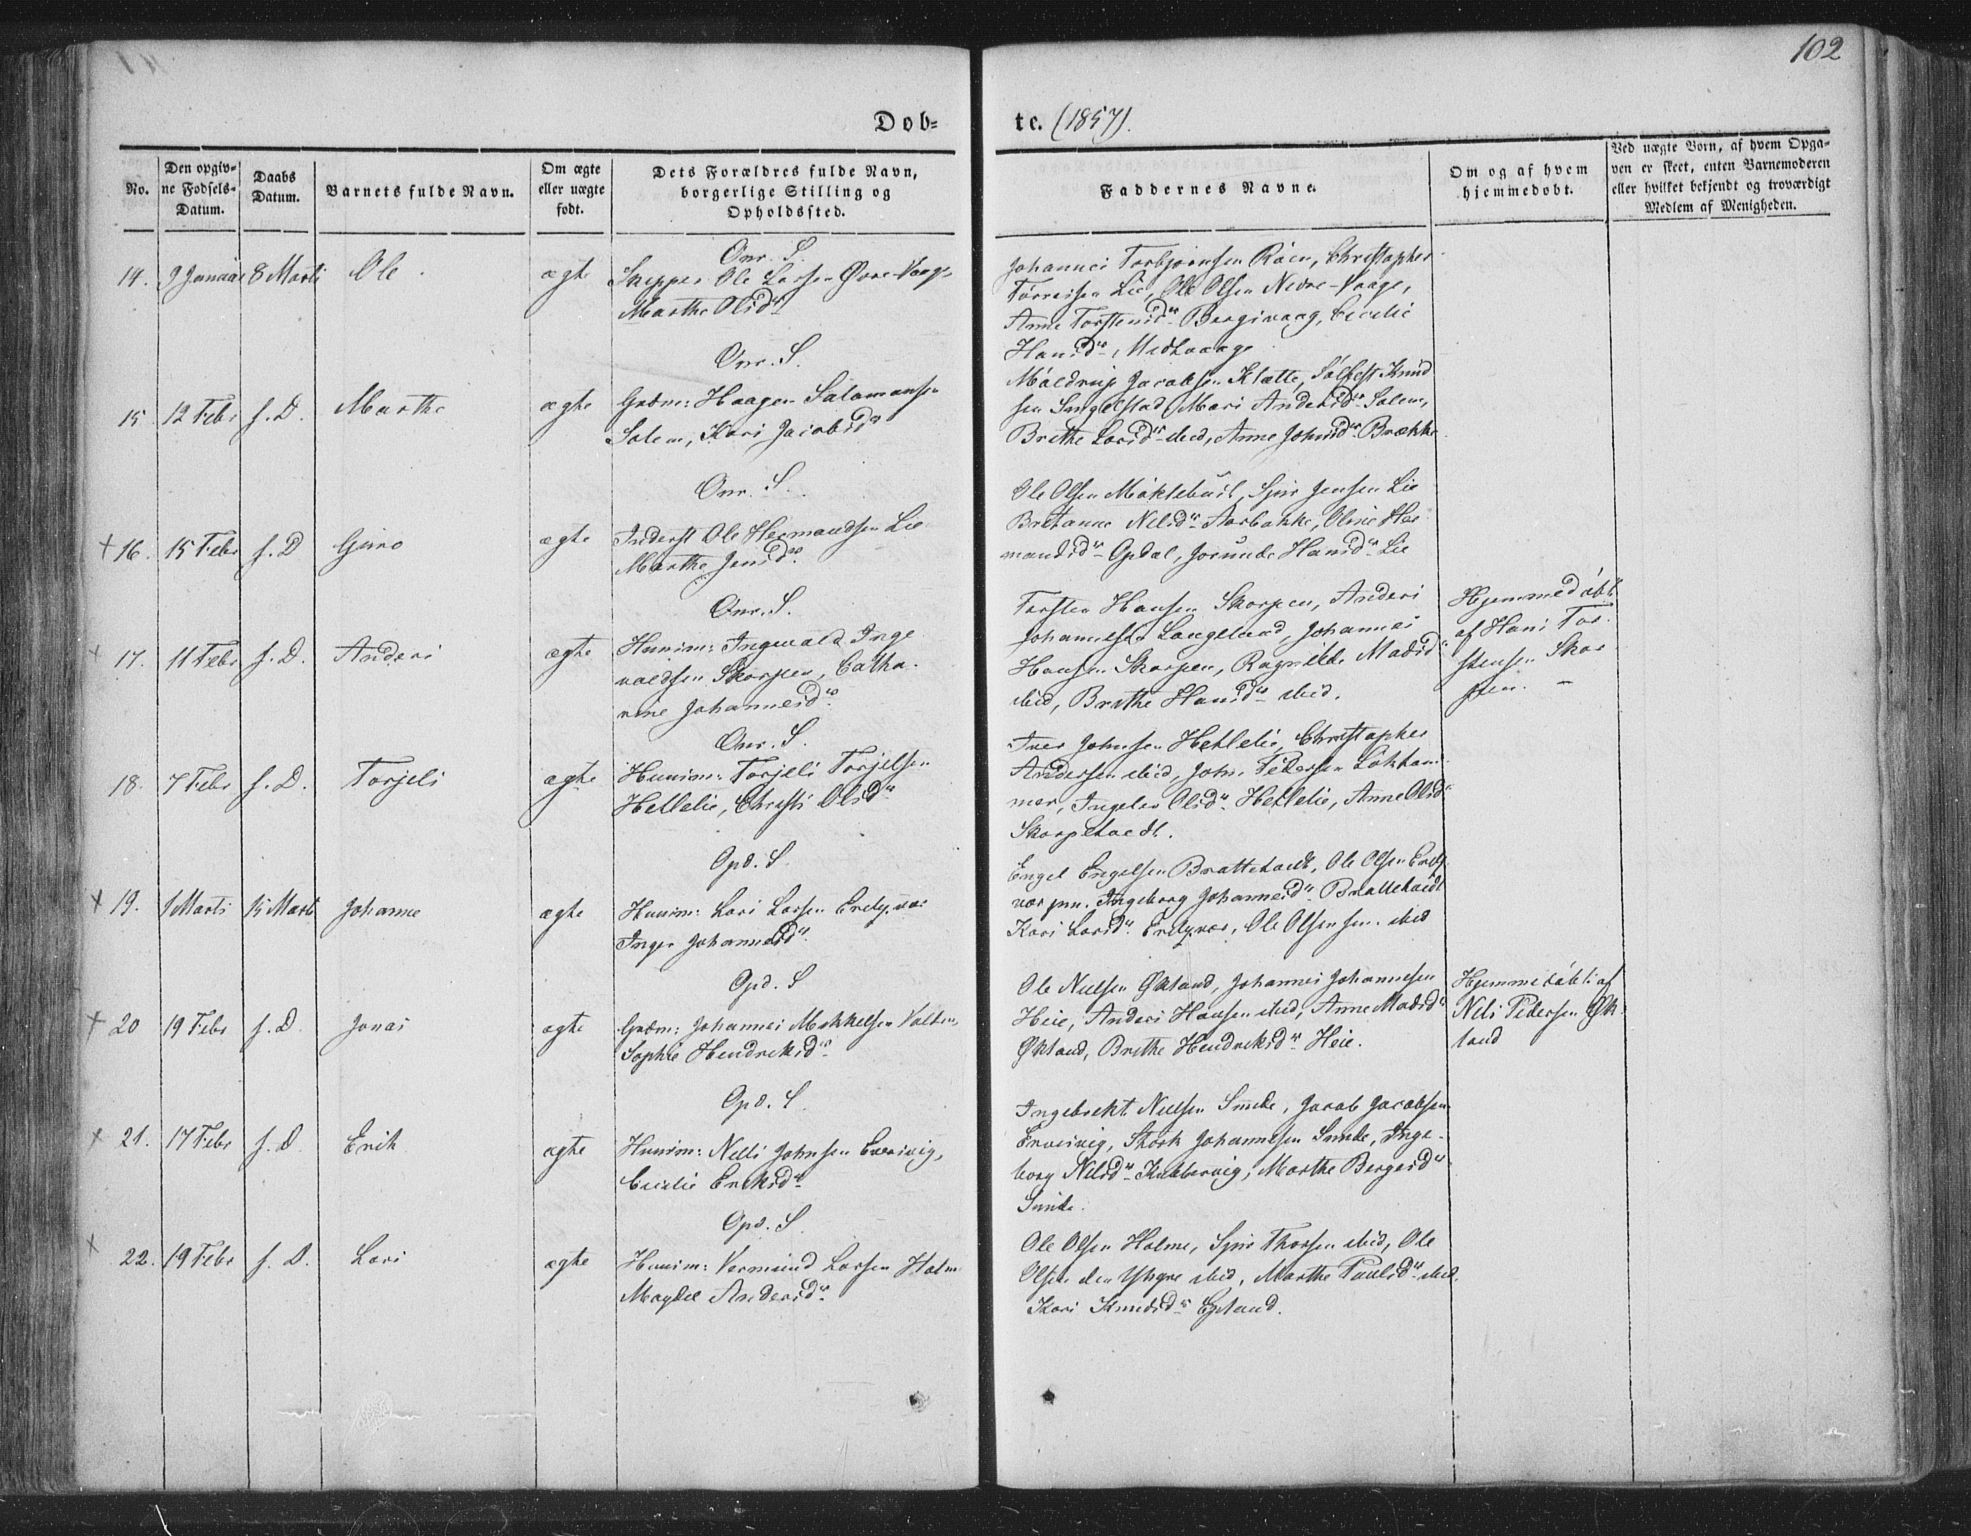 102
Døb-
te. (1857).
No.
Den opgiv-
ne Fødsels-
Datum.
Daabs
Datum.
Barnets fulde Navn.
Om ægte
eller uægte
født.
Dets Forældres fulde Navn,
borgerlige Stilling og
Opholdssted.
Faddernes Navne.
Om og af hvem
hjemmedøbt.
Ved uægte Børn, af hvem Opga-
ven er skeet, enten Barnemoderen
eller hvilket bekjendt og troværdigt
Medlem af Menigheden.
14. 9 Januar 8 Marts Ole ægte
Onr. S.
Skipper Ole Larsen Øvre-Vaage
Marthe Olsdr
Johannes Torbjørnsen Røen, Christopher
Tørresen Lie, Ole Olsen Nedre-Vaage,
Anne Torstensdr Bergsvaag, Cecilie
Hansdr, Midtvaage
15 12 Febr s. D. Marthe ægte
Onr. S.
Grdm: Haagen Salamonsen
Solem, Kari Jacobsdr
Maldrup Jacobsen Klætte, Solfest Knud
sen Singelstad, Mari Andersdr Solem,
Brithe Larsdr ibid, Anne Johnsdr Brække
+ 16. 15 Febr s. D Guro ægte
Onr. S.
Inderst Ole Hermandsen Lie
Marthe Jensdr
Ole Olsen Møklebust, Sjur Jensen Lie
Britanne Nilsdr Aarbakke, Oline Her
mandsdr Opdal, Jorunde Hansdr Lie
+ 17. 11 Febr s. D. Anders ægte
Onr. S.
Huusm: Ingevald Inge
valdsen Skorpen, Catha-
rine Johannesdr
Torsten Hansen Skorpen, Anders
Johannessen Langeland, Johannes
Hansen Skorpen, Ragnilde Madsdr
ibid, Brithe Hansdr ibid.
Hjemmedøbt
af Hans Tor
stensen Skor
pen. –
18. 7 Febr s. D. Torjels ægte
Onr. S.
Huusm: Torjels Torjelsen
Hetlelie, Christi Olsdr
Iver Johnsen Hetlelie, Christopher
Andersen ibid, John Pedersen Løkham
mer, Ingelev Olsdr Hetlelie, Anne Olsdr
Skorpetvedt.
+ 19. 1 Marts 15 Marts Johanne ægte
Opd. S.
Huusm: Lars Larsen
Inger Johannesdr
Engel Engelsen Brattetveit, Ole Olsen
Ingeborg Johannesdr Brattetveit
Kari Larsdr Ole Olsen sen. ibid
+ 20 19 Febr s. D. Jonas ægte
Opd. S
Grdm: Johannes Mikkelsen
Sophie Hendriksdr
Ole Nielsen Økland, Johannes Johannesen
Heie, Anders Hansen ibid, Anne Madsdr
Økland, Brithe Hendriksdr Heie.
Hjemmedøbt af
Nils Pedersen Øk-
land
+ 21. 17 Febr s. D. Erik ægte
Opd. S
Huusm: Nills Johnsen Ervesvig,
Cecilie Eriksdr
Ingebrekt Nielsen Sunde, Jacob Jacobsen
Ervesvig, Størk Johannesen Sunde, Inge-
borg Nilsdr Kubbervig, Marthe Bergesdr
Sunde.
+ 22. 19 Febr s. D. Lars ægte
Opd. S
Huusm: Vermund Larsen Holm
Magdel Andersdr
Ole Olsen Holme, Sjur Thorsen ibid, Ole
Olsen den Yngre ibid, Marthe Paulsdr ibid.
Kari Knudsdr Epland.